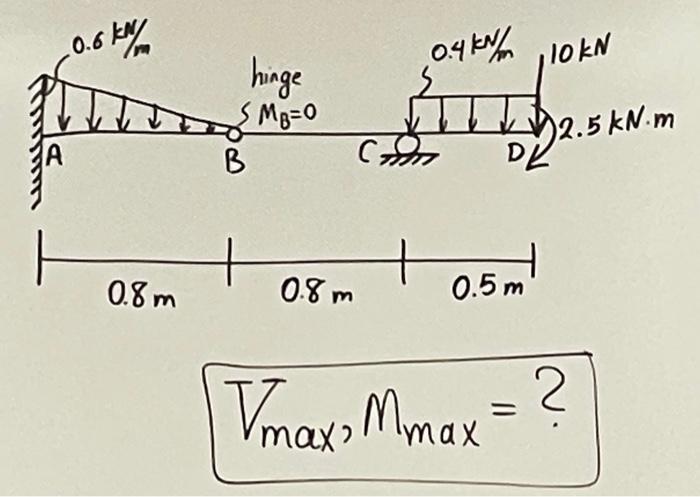 0.6 kN/m
0.4 kN/m
10 kN
hinge
M_B=0
2.5 kN·m
A
B
C
D
0.8 m
0.8 m
0.5 m
V_max, M_max = ?